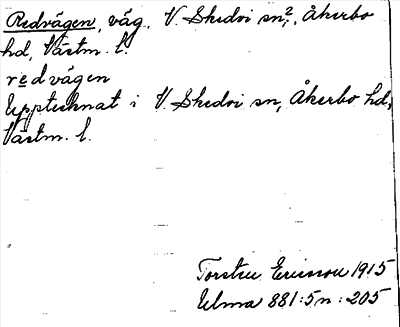 Redvägen, väg. V. Skedvi sn²., Åkerbo
hd, Västm. l.
redvägen
Upptecknat i V. Skedvi sn, Åkerbo hd,
Västm. l.
Torsten Ericsson 1915
Ulma 881:5 n: 205